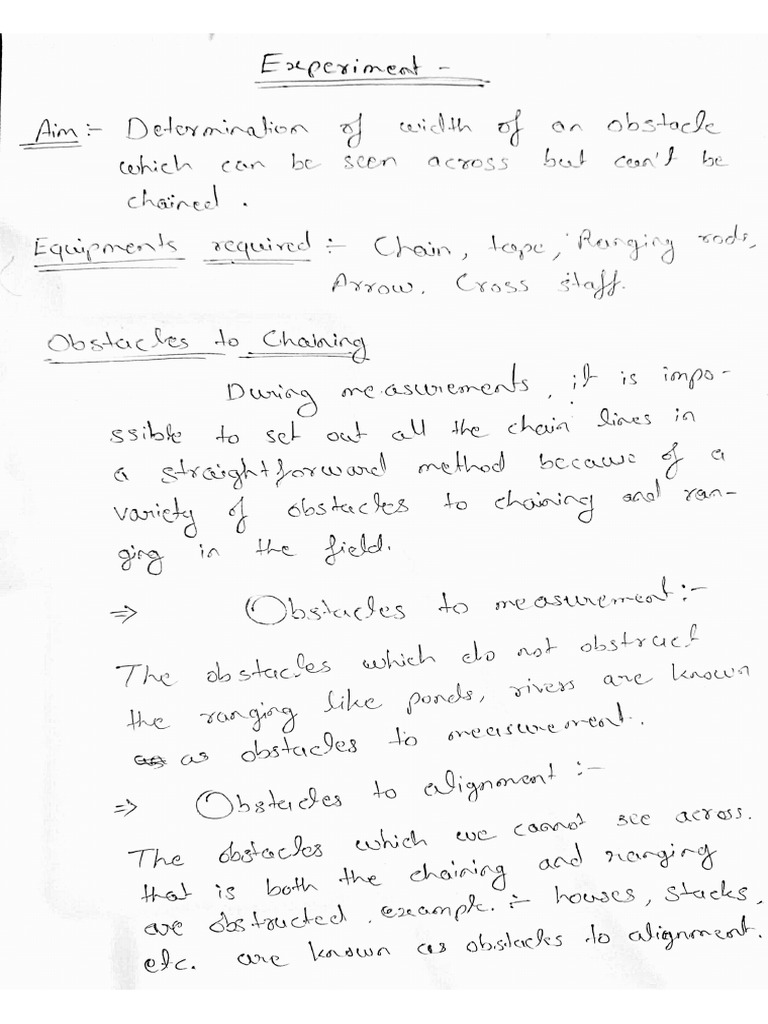 Experiment -
Aim :- Determination of width of an obstacle
which can be seen across but can't be
chained.
Equipments required :- Chain, tape, Ranging rods,
Arrow, Cross staff.
Obstacles to Chaining
During measurements, it is impo-
ssible to set out all the chain lines in
a straightforward method because of a
variety of obstacles to chaining and ran-
ging in the field.
⇒ Obstacles to measurement :-
The obstacles which do not obstruct
the ranging like ponds, rivers are known
as obstacles to measurement.
⇒ Obstacles to alignment :-
The obstacles which we cannot see across.
that is both the chaining and ranging
are obstructed. example :- houses, stacks,
etc. are known as obstacles to alignment.